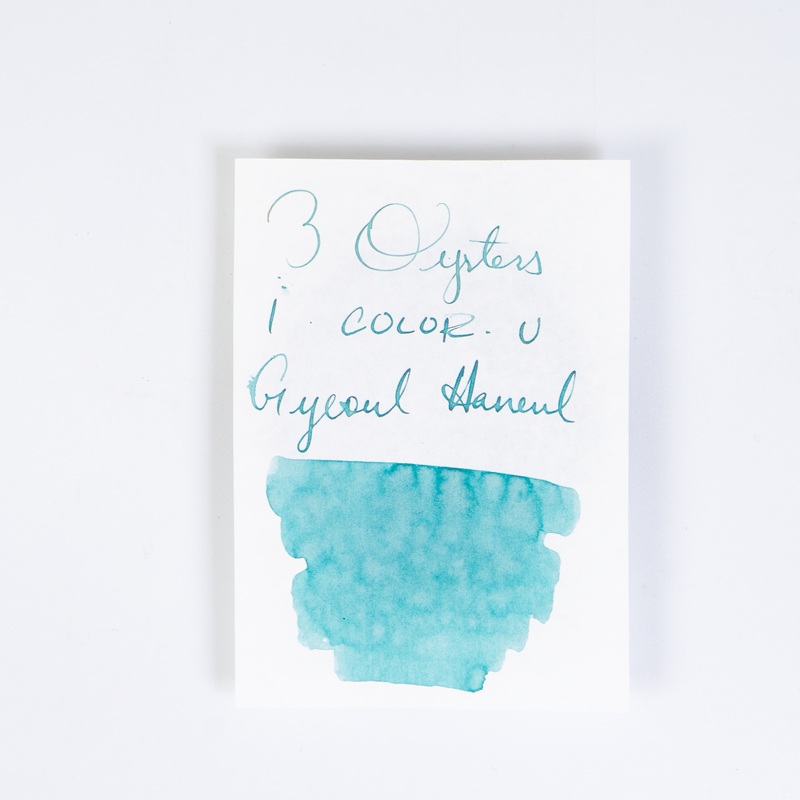 3 Oysters
i · COLOR · U
Gyeoul Haneul